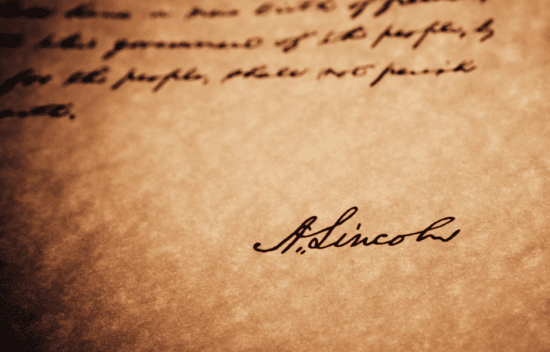 have a new birth of freedom
this government of the people, by
for the people, shall not perish
earth.
A. Lincoln